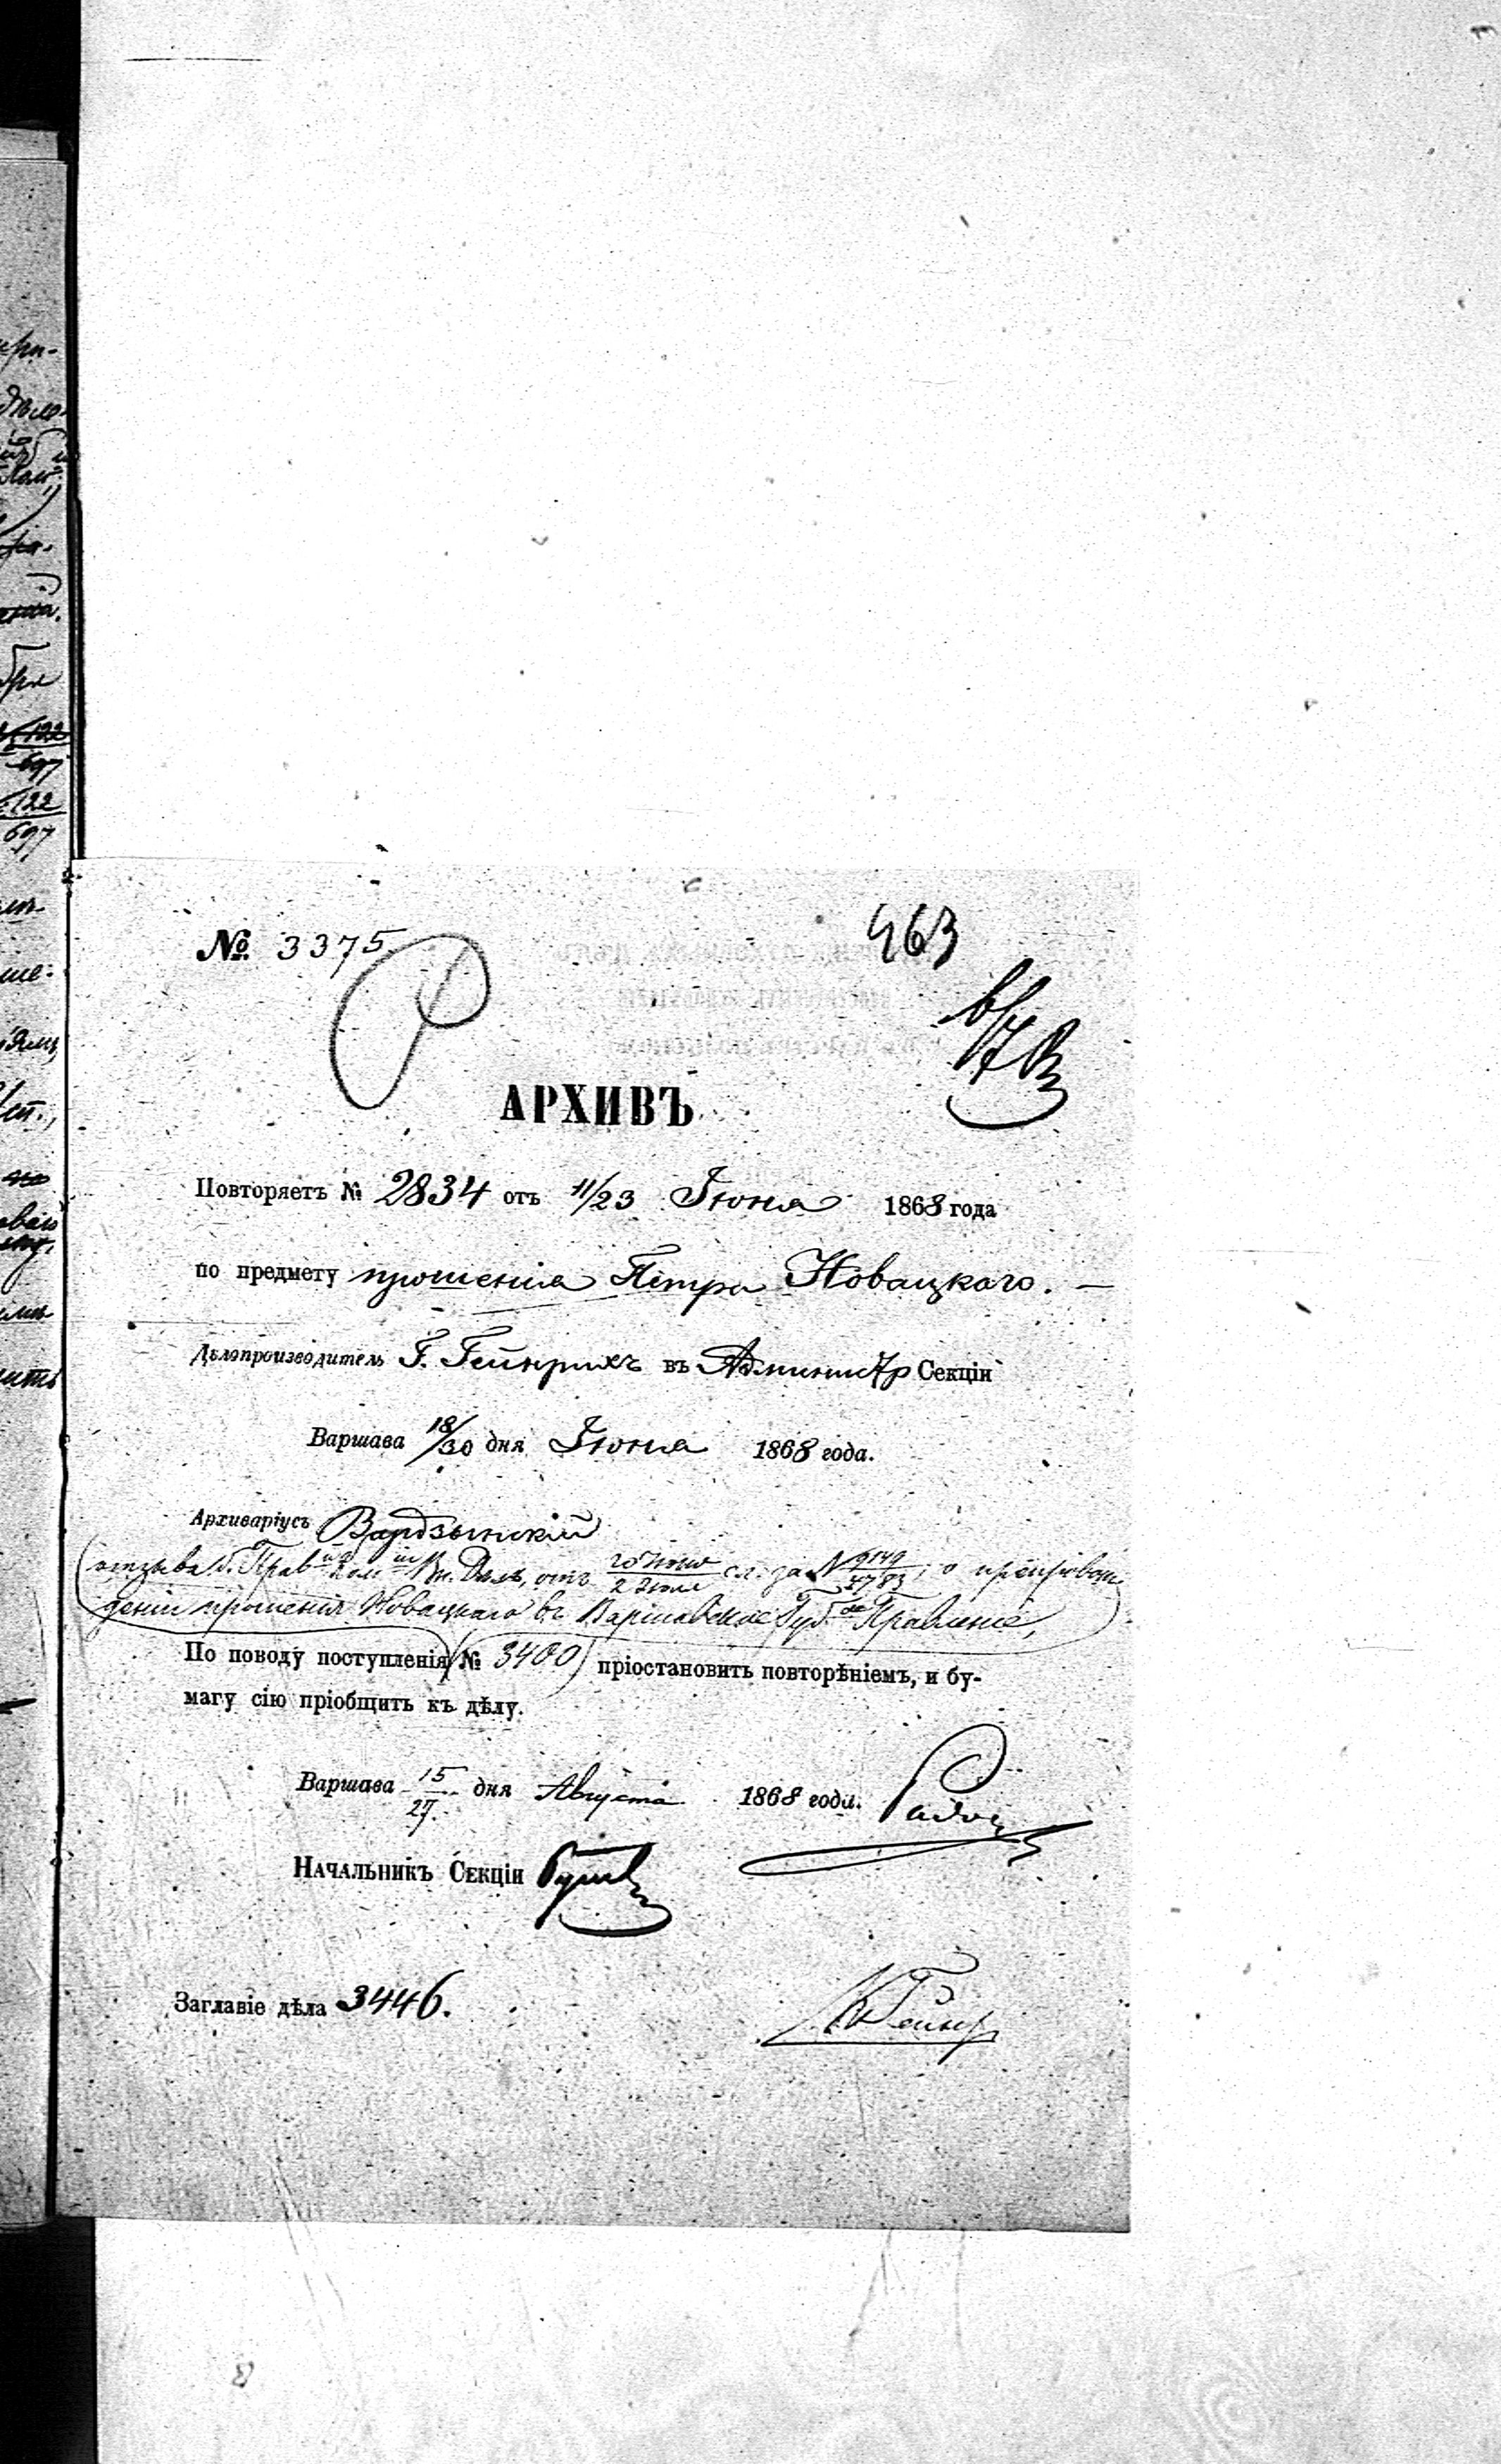 463
№ 3375
АРХИВЪ
Повторяетъ № 2834 отъ 11/23 Іюня 1868 года
по предмету прошенія Петра Новацкаго. —
Дѣлопроизводитель Г. Гейнрихъ въ Администр Секціи
Варшава 18/30 дня Іюня 1868 года.
Архиваріусъ Вардзынскій
отзыва б. Прав Ком Вн. Дѣлъ, отъ 20 Іюня / 2 Іюля с.г. за № 9149/4783, о препровож
деніи прошенія Новацкаго въ Варшавское Губ. Правленіе,
По поводу поступленія № 3400 пріостановить повторѣніемъ, и бу-
магу сію пріобщить къ дѣлу.
Варшава 15/27 дня Августа 1868 года.
Начальникъ Секціи
Заглавіе дѣла 3446.
К Гейнр